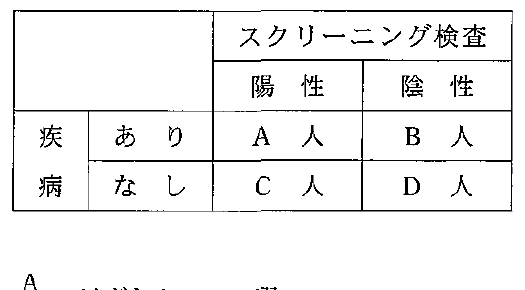 スクリーニング検査
陽 性 陰 性
疾 あ り A 人 B 人
病 な し C 人 D 人
A